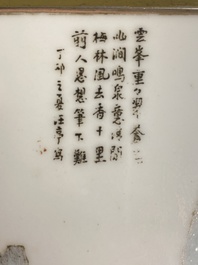 雲峯重々翠蒼
此澗鳴泉意濃閒
梅林風去香十里
前人思想筆下難
丁卯之夏汪寫